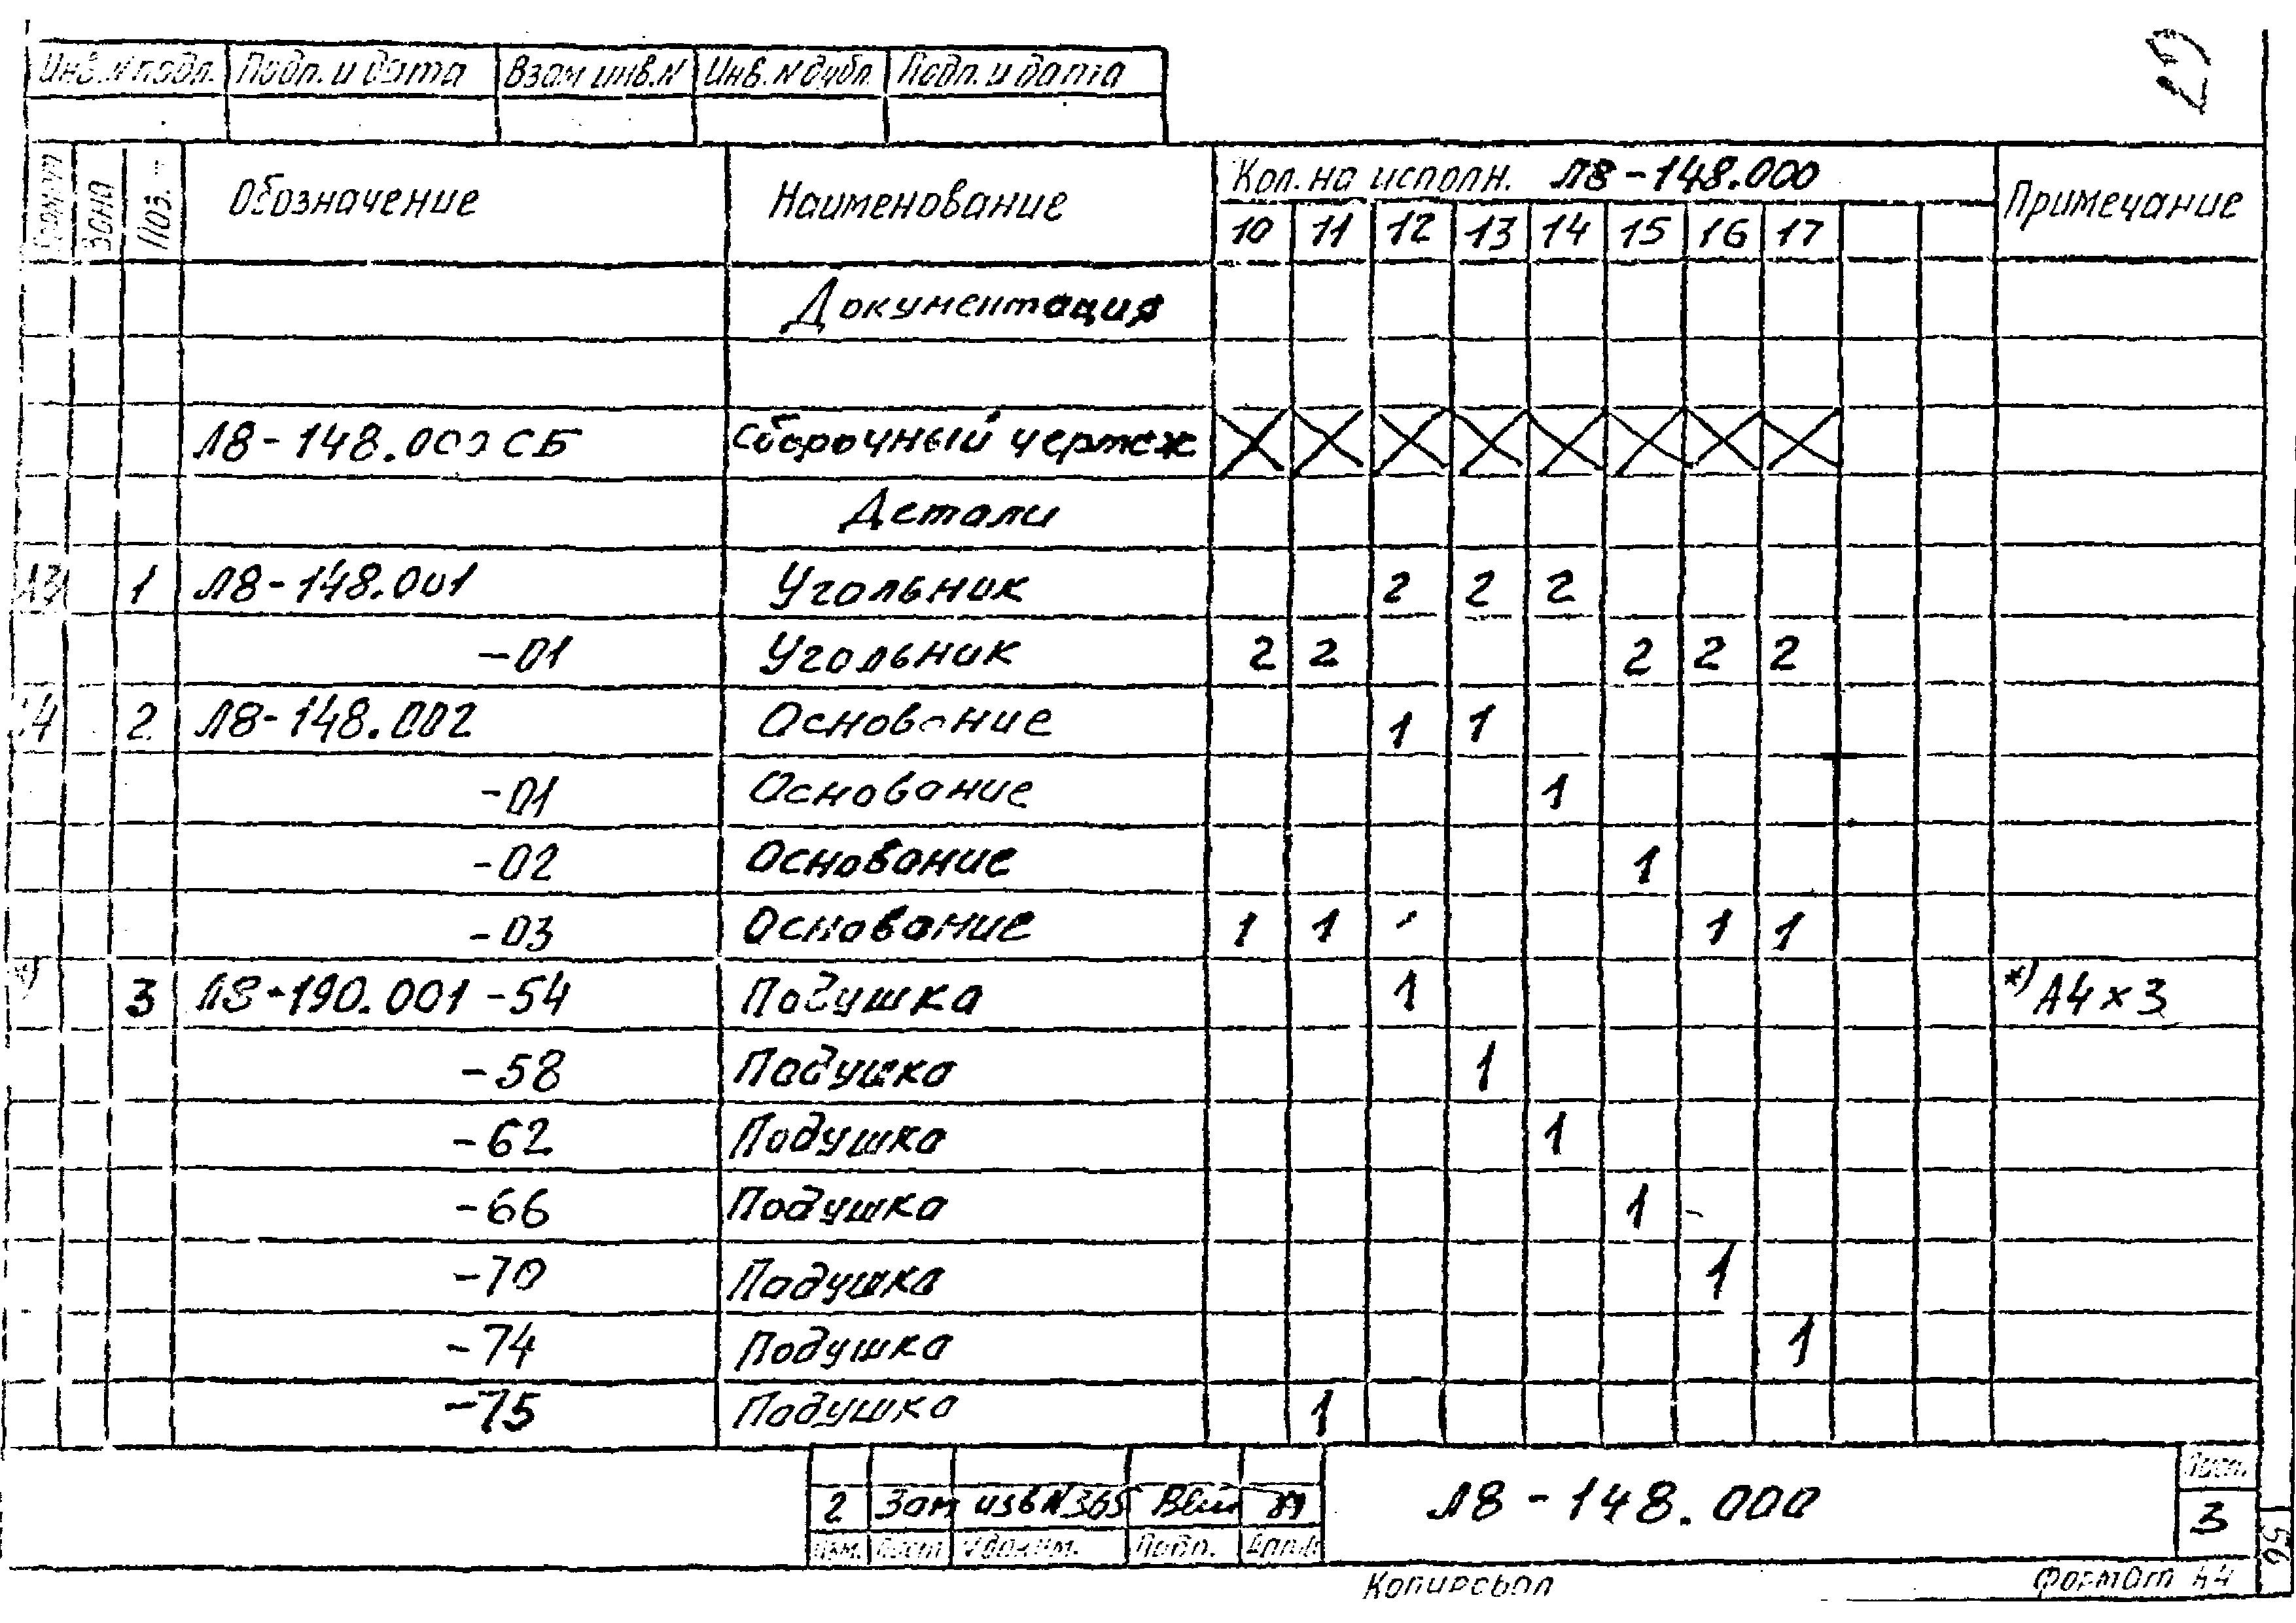 Инв.N подл. Подп. и дата Взам инв.N Инв.N дубл. Подп. и дата
Формат Зона Поз. Обозначение Наименование Кол. на исполн. Л8-148.000 Примечание
10 11 12 13 14 15 16 17
Документация
Л8-148.000 СБ Сборочный чертеж
Детали
А3 1 Л8-148.001 Угольник 2 2 2
-01 Угольник 2 2 2 2 2
А4 2 Л8-148.002 Основание 1 1
-01 Основание 1
-02 Основание 1
-03 Основание 1 1 1 1
*) 3 Л8-190.001 -54 Подушка 1 *) А4×3
-58 Подушка 1
-62 Подушка 1
-66 Подушка 1
-70 Подушка 1
-74 Подушка 1
-75 Подушка 1
2 Зам изв N365 89
Изм. Лист N докум. Подп. Дата
Л8-148.000
Лист
3
56
Копировал Формат А4